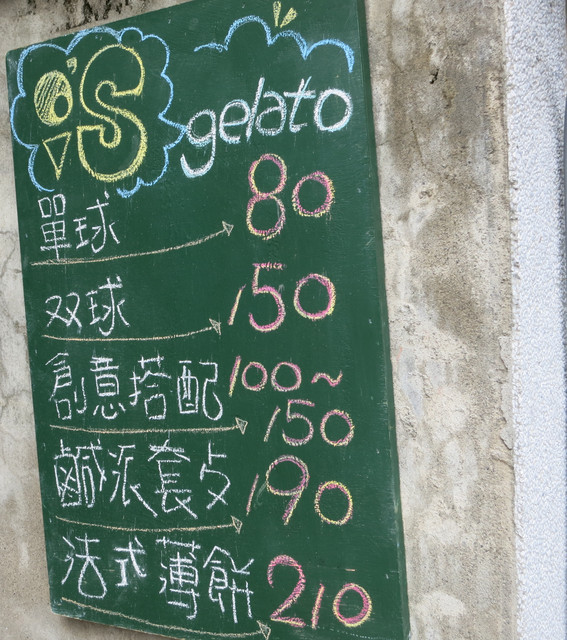 8'S
gelato
單球 80
双球 150
創意搭配 100~
150
鹹派套攴 190
法式薄餅 210